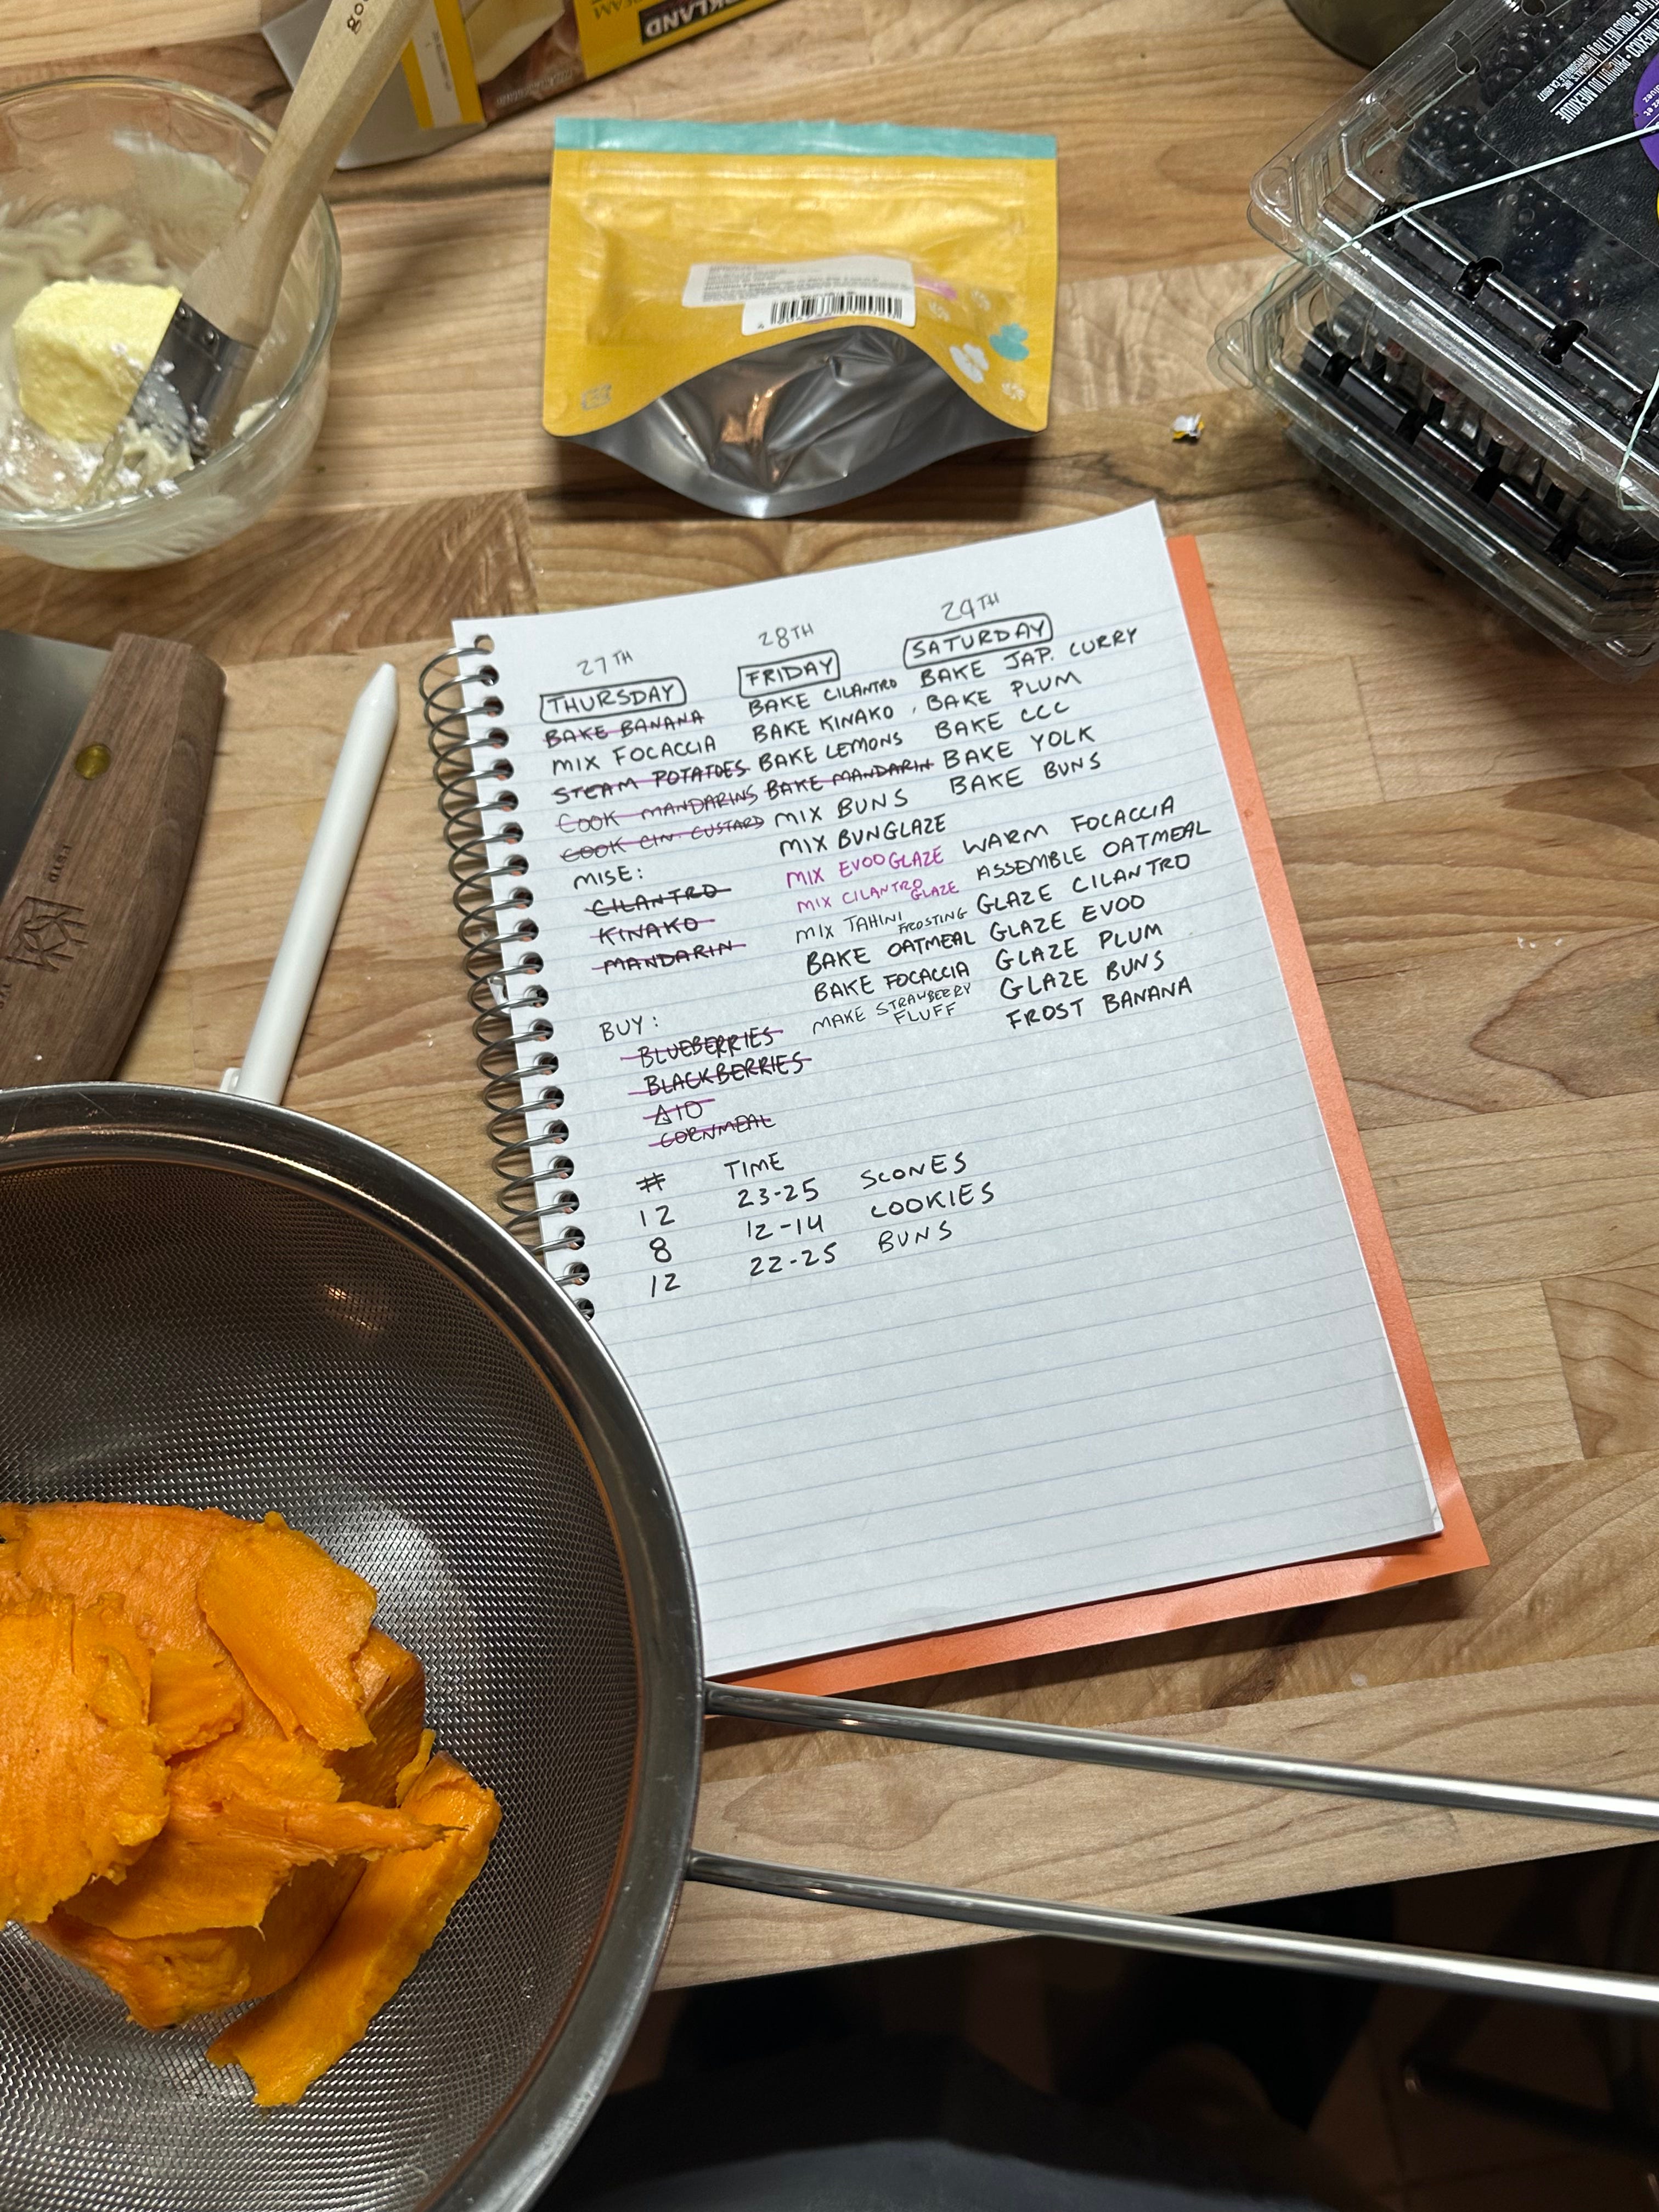 KLAND
27TH
THURSDAY
BAKE BANANA
MIX FOCACCIA
STEAM POTATOES
COOK MANDARINS
COOK CIN. CUSTARD
MISE:
CILANTRO
KINAKO
MANDARIN
BUY:
BLUEBERRIES
BLACKBERRIES
CORNMEAL
28TH
FRIDAY
BAKE CILANTRO
BAKE KINAKO
BAKE LEMONS
BAKE MANDARIN
MIX BUNS
MIX BUNGLAZE
MIX EVOO GLAZE
MIX CILANTRO GLAZE
MIX TAHINI FROSTING
BAKE OATMEAL
BAKE FOCACCIA
MAKE STRAWBERRY
FLUFF
29TH
SATURDAY
BAKE JAP. CURRY
BAKE PLUM
BAKE CCC
BAKE YOLK
BAKE BUNS
WARM FOCACCIA
ASSEMBLE OATMEAL
GLAZE CILANTRO
GLAZE EVOO
GLAZE PLUM
GLAZE BUNS
FROST BANANA
# TIME
12 23-25 SCONES
8 12-14 COOKIES
12 22-25 BUNS